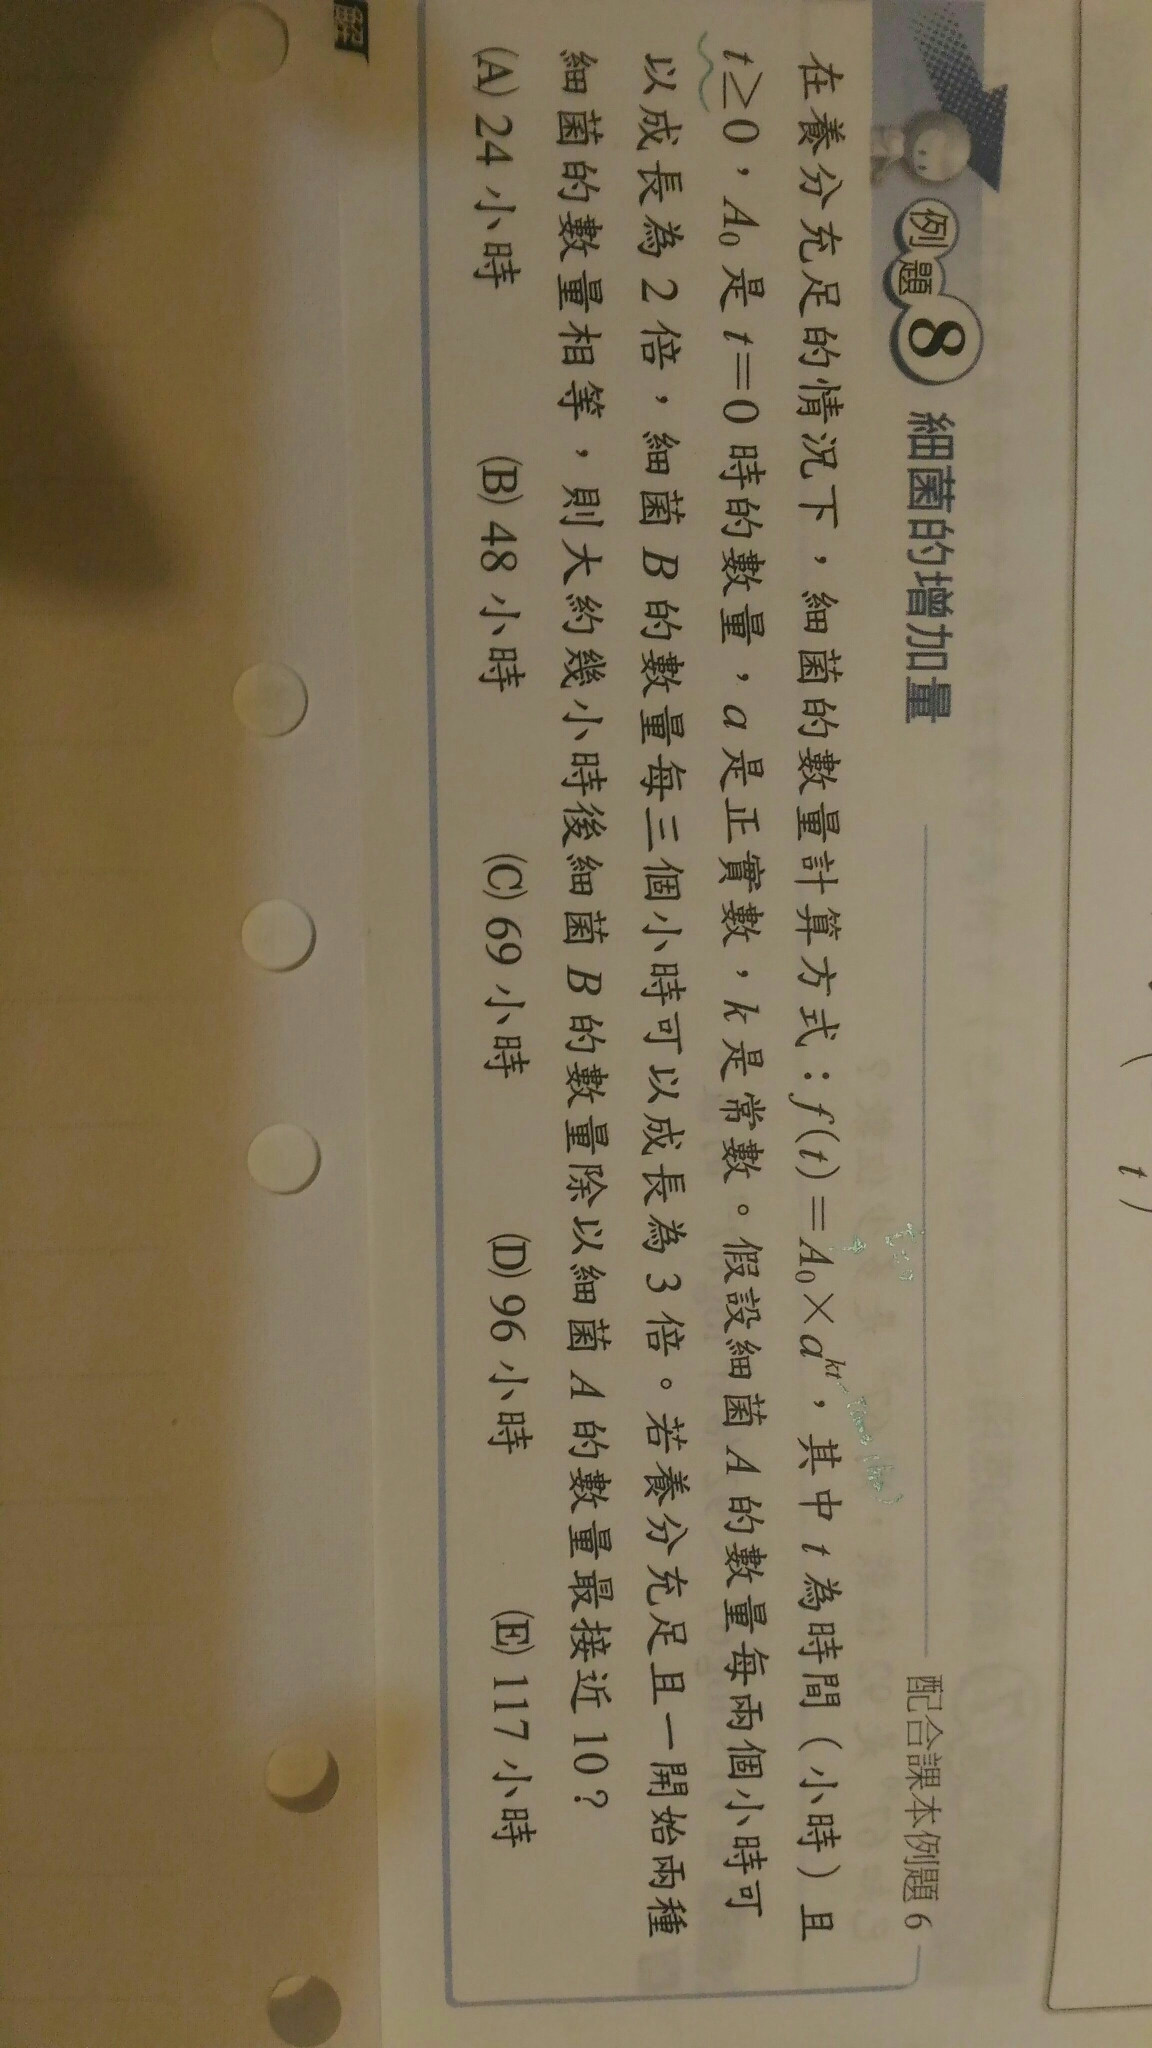 例題8 細菌的增加量
配合課本例題6
在養分充足的情況下，細菌的數量計算方式：f(t)＝A₀×aᵏᵗ，其中t為時間（小時）且
t≥0，A₀是t＝0時的數量，a是正實數，k是常數。假設細菌A的數量每兩個小時可
以成長為2倍，細菌B的數量每三個小時可以成長為3倍。若養分充足且一開始兩種
細菌的數量相等，則大約幾小時後細菌B的數量除以細菌A的數量最接近10？
(A) 24小時 (B) 48小時 (C) 69小時 (D) 96小時 (E) 117小時
解
t)